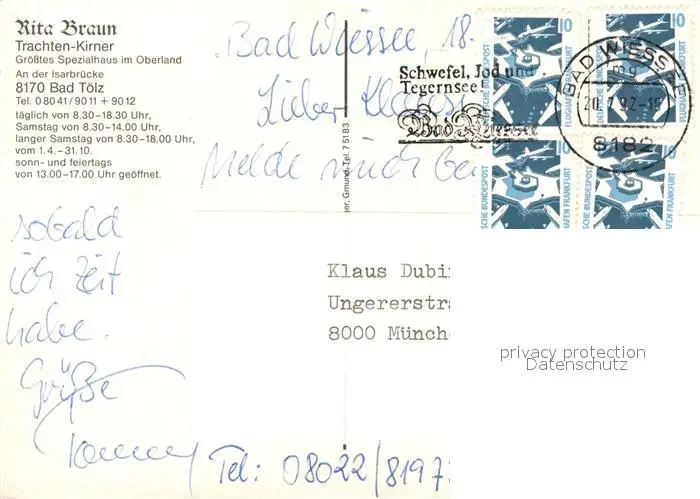 Rita Braun
Trachten-Kirner
Größtes Spezialhaus im Oberland
An der Isarbrücke
8170 Bad Tölz
Tel. 08041/9011 + 9012
täglich von 8.30-18.30 Uhr,
Samstag von 8.30-14.00 Uhr,
langer Samstag von 8.30-18.00 Uhr,
vom 1.4.-31.10.
sonn- und feiertags
von 13.00-17.00 Uhr geöffnet.
Bad Wiessee, 18.
Lieber Klaus
Melde mich bei
sobald
ich Zeit
habe.
Grüße
Tel: 08022/8197
ger, Gmund, Tel. 7 51 83
Schwefel, Jod und
Tegernsee
Bad Wiessee
BAD WIESSEE
mg
-18
8182
10
10
DEUTSCHE BUNDESPOST
FLUGHAFEN FRANKFURT
FLUGHAFEN FRANKFURT
SCHE BUNDESPOST
HAFEN FRANKFURT
SCHE BUNDESPOST
HAFEN FRANKFURT
Klaus Dubi
Ungererstra
8000 Münch
privacy protection
Datenschutz